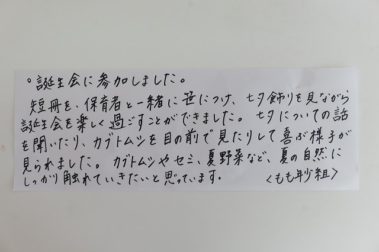 。誕生会に参加しました。
短冊を、保育者と一緒に笹につけ、七夕飾りを見ながら
誕生会を楽しく過ごすことができました。七夕についての話
を聞いたり、カブトムシを目の前で見たりして喜ぶ様子が
見られました。カブトムシやセミ、夏野菜など、夏の自然に
しっかり触れていきたいと思っています。 〈もも年少組〉